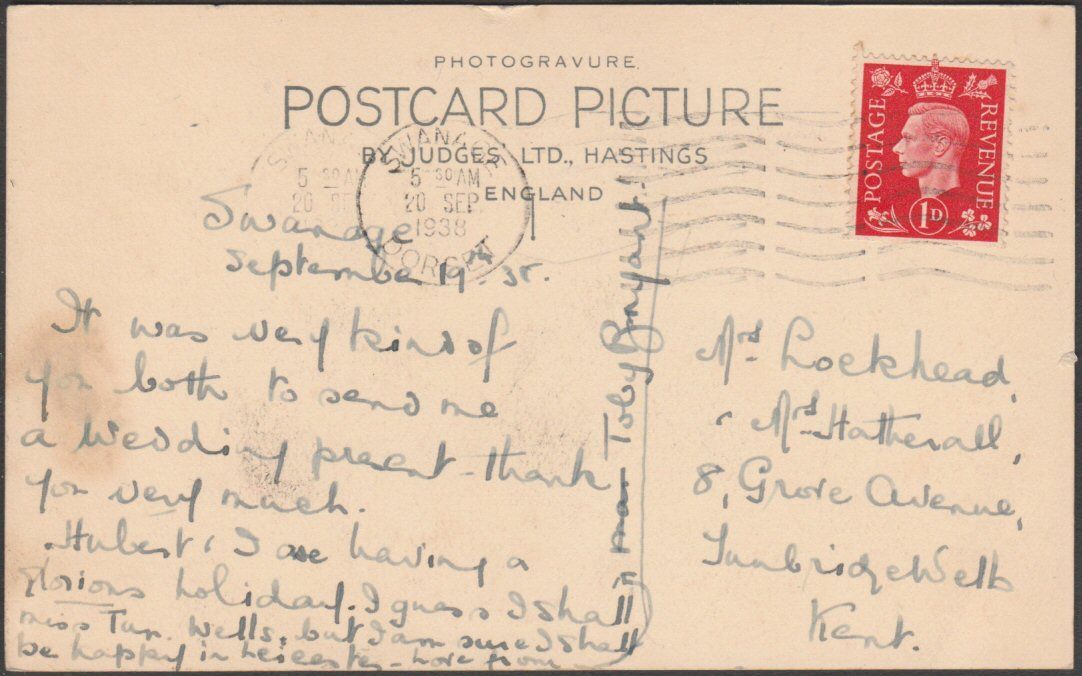 PHOTOGRAVURE
POSTCARD PICTURE
BY JUDGES, LTD., HASTINGS
ENGLAND
SWANAGE
5 30 AM
20 SEP
1938
DORSET
POSTAGE
REVENUE
1D
Swanage
September 19th 38.
It was very kind of
you both to send me
a wedding present - thank
you very much.
Hubert & I are having a
glorious holiday. I guess I shall
miss Tun. Wells, but I am sure I shall
be happy in Leicester - Love from
Toby Bryant.
Mrs. Lockhead,
& Mrs. Hatherall,
8, Grove Avenue,
Tunbridge Wells
Kent.